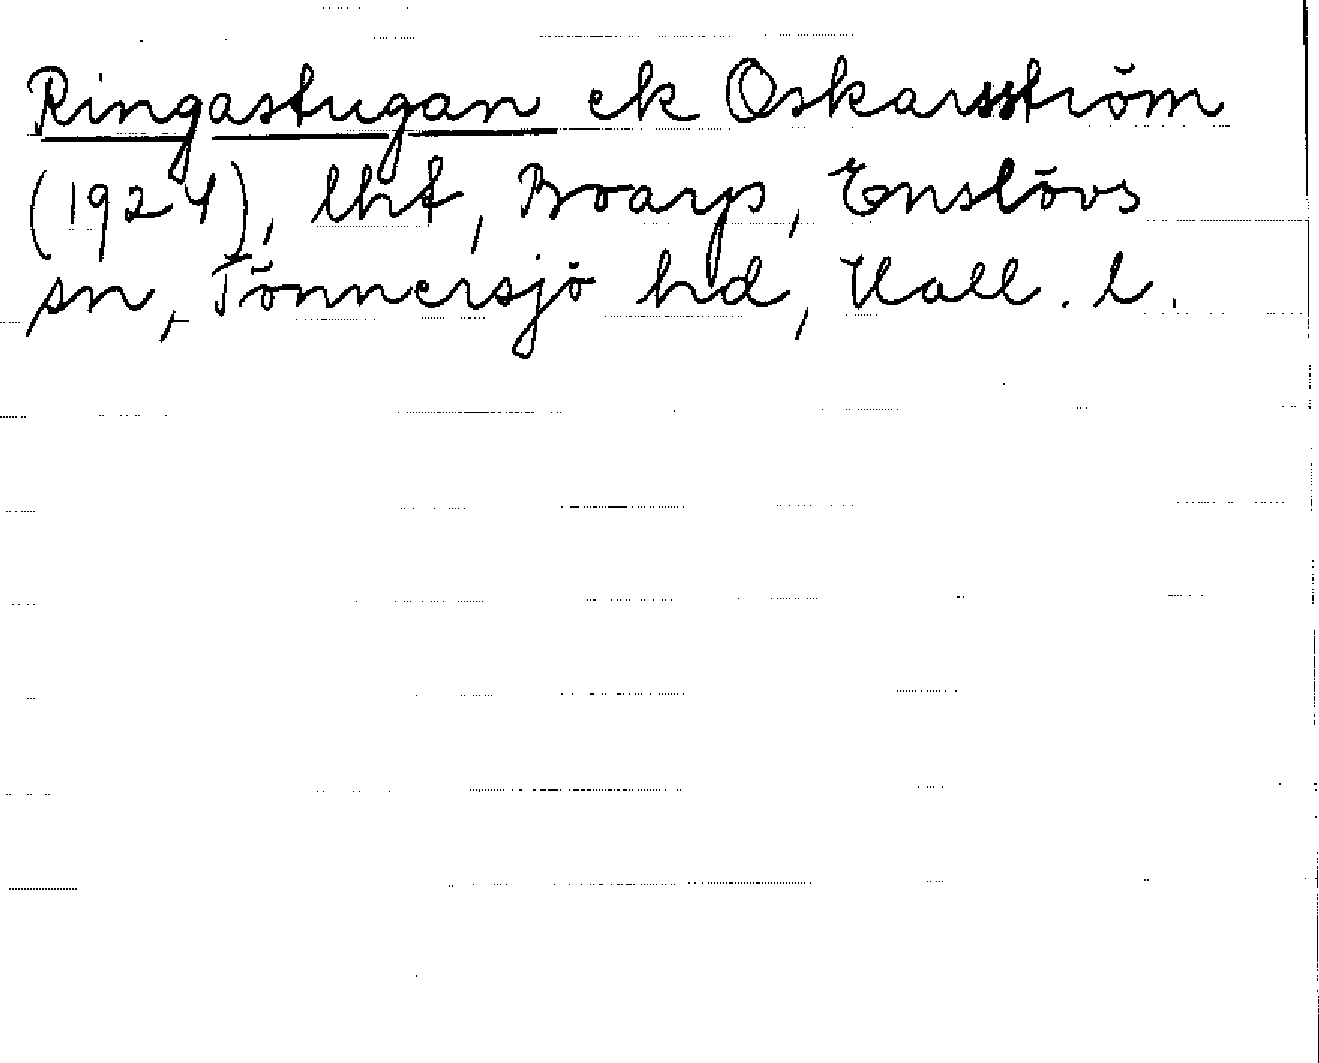 Ringastugan ek Oskarsström
(1924), lht, Broarp, Enslövs
sn, Tönnersjö hd, Hall. l.